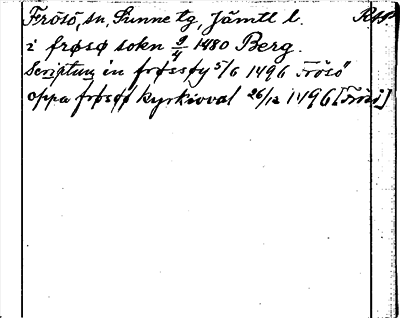 Frösö, sn, Sunne tg, Jämtl l. Rapp
i frøsø sokn 9/4 1480 Berg.
Scriptum in frøssøy 5/6 1496 Frösö
oppa frøsø kyrkioval 26/12 1496 [Frösö]